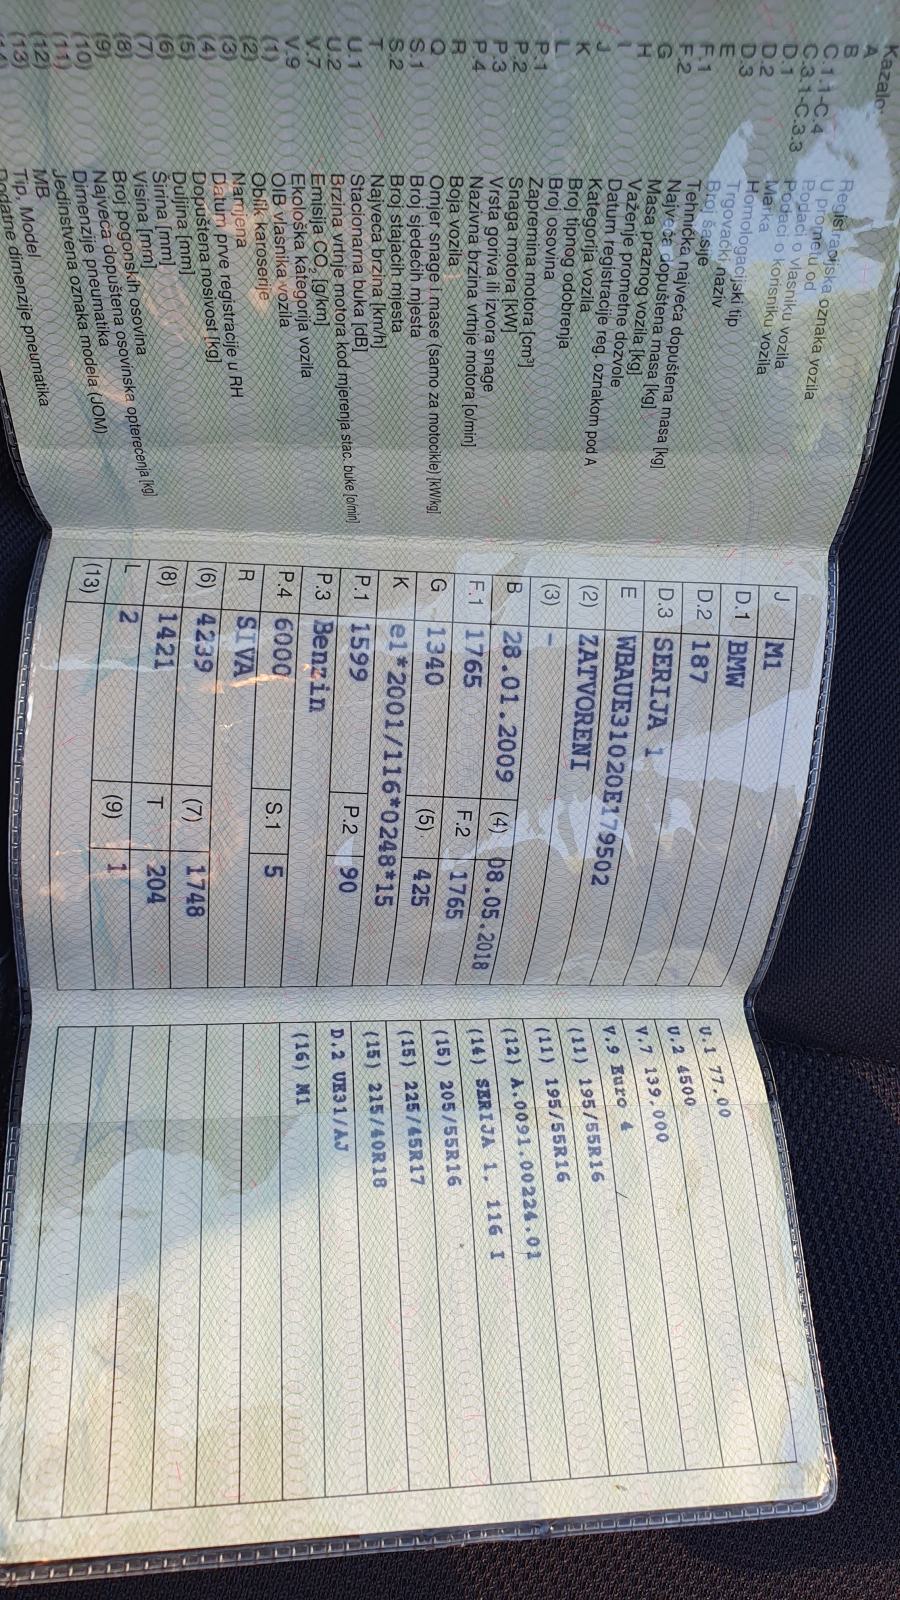 Kazalo:
A Registracijska oznaka vozila
B U prometu od
C.1.1-C.4 Podaci o vlasniku vozila
C.3.1-C.3.3 Podaci o korisniku vozila
D.1 Marka
D.2 Homologacijski tip
D.3 Trgovački naziv
E Broj šasije
F.1 Tehnička najveća dopuštena masa [kg]
F.2 Najveća dopuštena masa [kg]
G Masa praznog vozila [kg]
H Važenje prometne dozvole
I Datum registracije reg. oznakom pod A
J Kategorija vozila
K Broj tipnog odobrenja
L Broj osovina
P.1 Zapremina motora [cm³]
P.2 Snaga motora [kW]
P.3 Vrsta goriva ili izvora snage
P.4 Nazivna brzina vrtnje motora [o/min]
R Boja vozila
Q Omjer snage i mase (samo za motocikle) [kW/kg]
S.1 Broj sjedećih mjesta
S.2 Broj stajaćih mjesta
T Najveća brzina [km/h]
U.1 Stacionarna buka [dB]
U.2 Brzina vrtnje motora kod mjerenja stac. buke [o/min]
V.7 Emisija CO₂ [g/km]
V.9 Ekološka kategorija vozila
(1) OIB vlasnika vozila
(2) Oblik karoserije
(3) Namjena
(4) Datum prve registracije u RH
(5) Dopuštena nosivost [kg]
(6) Duljina [mm]
(7) Širina [mm]
(8) Visina [mm]
(9) Broj pogonskih osovina
(10) Najveća dopuštena osovinska opterećenja [kg]
(11) Dimenzije pneumatika
(12) Jedinstvena oznaka modela (JOM)
(13) MB. Model
Tip. Model
Dodatne dimenzije pneumatika
J M1
D.1 BMW
D.2 187
D.3 SERIJA 1
E WBAUE31020E179502
(2) ZATVORENI
(3) -
B 28.01.2009 (4) 08.05.2018
F.1 1765 F.2 1765
G 1340 (5) 425
K e1*2001/116*0248*15
P.1 1599 P.2 90
P.3 Benzin
P.4 6000 S.1 5
R SIVA
(6) 4239 (7) 1748
(8) 1421 T 204
L 2 (9) 1
(13)
U.1 77.00
U.2 4500
V.7 139.000
V.9 Euro 4
(11) 195/55R16
(11) 195/55R16
(12) A.0091.00224.01
(14) SERIJA 1. 116 I
(15) 205/55R16
(15) 225/45R17
(15) 215/40R18
D.2 UE31/AJ
(16) M1